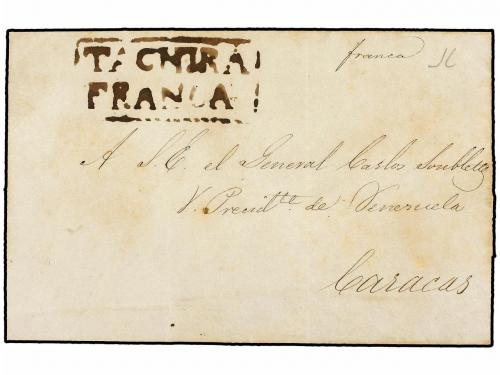 TACHIRA
FRANCA
franca
A S.E. el General Carlos Soublette
V. Presid.te de Venezuela
Caracas